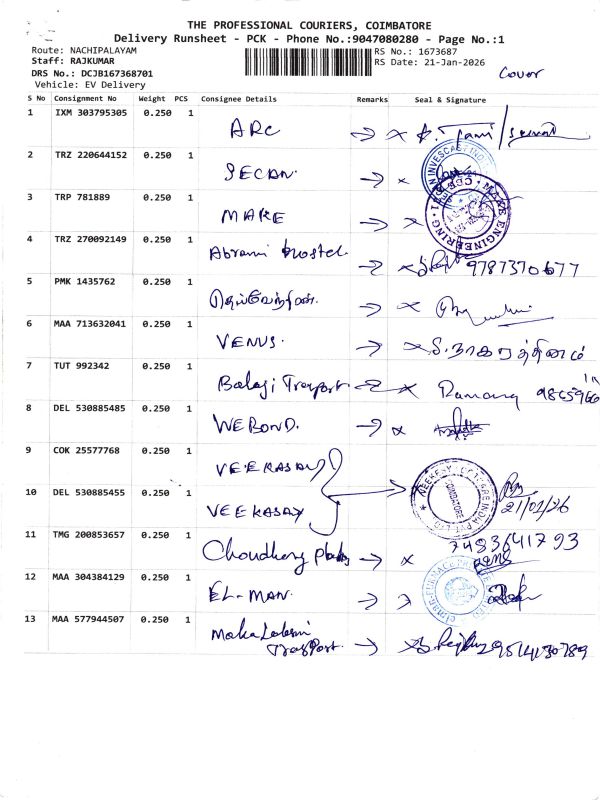 THE PROFESSIONAL COURIERS, COIMBATORE
Delivery Runsheet - PCK - Phone No.:9047080280 - Page No.:1
Route: NACHIPALAYAM
RS No.: 1673687
Staff: RAJKUMAR
RS Date: 21-Jan-2026
DRS No.: DCJB167368701
Cover
Vehicle: EV Delivery
S No Consignment No Weight PCS Consignee Details Remarks Seal & Signature
1 IXM 303795305 0.250 1 ARC
2 TRZ 220644152 0.250 1 SECAN.
3 TRP 781889 0.250 1 MAKE
MAKE ENGINEERING
4 TRZ 270092149 0.250 1 Abrami hostel. 9787370677
5 PMK 1435762 0.250 1
6 MAA 713632041 0.250 1 VENUS. S.நாகரத்தினம்
7 TUT 992342 0.250 1 Balaji Trasport. 9865966
8 DEL 530885485 0.250 1 WEBOND.
9 COK 25577768 0.250 1 VEEKASAY
COIMBATORE
21/01/26
10 DEL 530885455 0.250 1 VEEKASAY
11 TMG 200853657 0.250 1 Choudhary 7493641793
12 MAA 304384129 0.250 1 EL-MAN.
13 MAA 577944507 0.250 1 MahaLaksmi
Trasport.